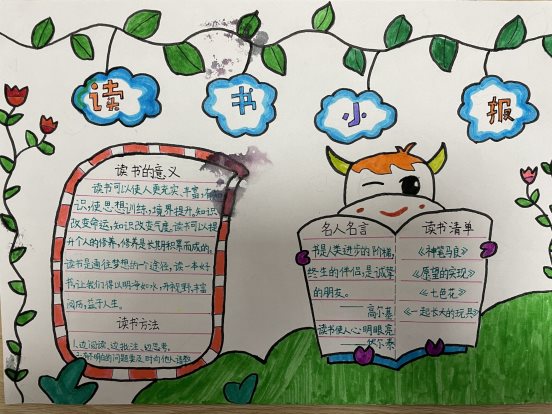 读书小报
读书的意义
读书可以使人更充实、丰富、有
识，使思想训练，境界提升。知识
改变命运，知识改变气度。读书可以提
升个人的修养，修养是长期积累而成的。
读书是通往梦想的一个途径，读一本好
书，让我们得以明净如水，开视野，丰富
阅历，益于人生。
读书方法
1、边阅读，边批注，边思考。
2、不明白的问题要及时向他人请教
名人名言
书是人类进步的阶梯，
终生的伴侣，是诚挚
的朋友。
——高尔基
读书使人心明眼亮
——伏尔泰
读书清单
《神笔马良》
《愿望的实现》
《七色花》
《一起长大的玩具》